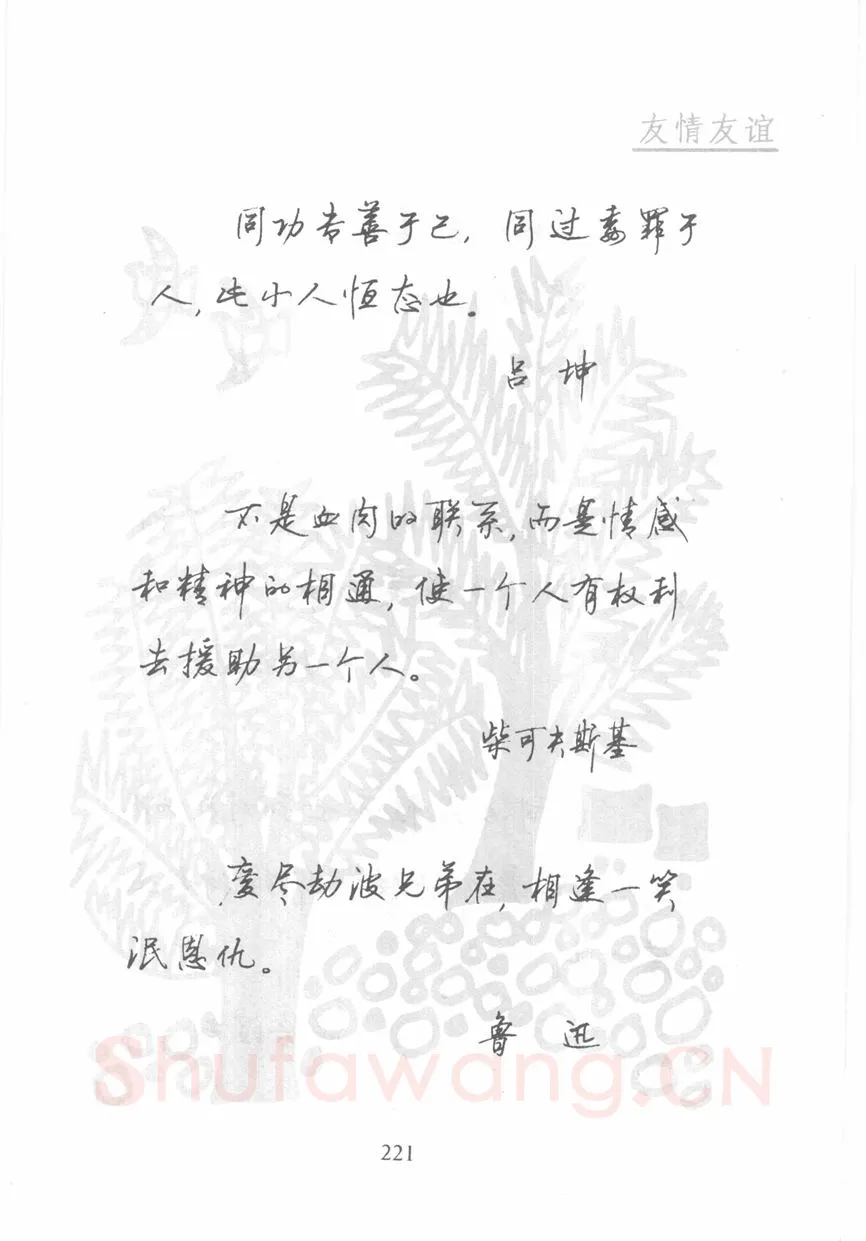 友情友谊
同功专善于己, 同过委罪于
人, 此小人恒态也。
吕 坤
不是血肉的联系, 而是情感
和精神的相通, 使一个人有权利
去援助另一个人。
柴可夫斯基
度尽劫波兄弟在, 相逢一笑
泯恩仇。
鲁 迅
Shufawang.CN
221